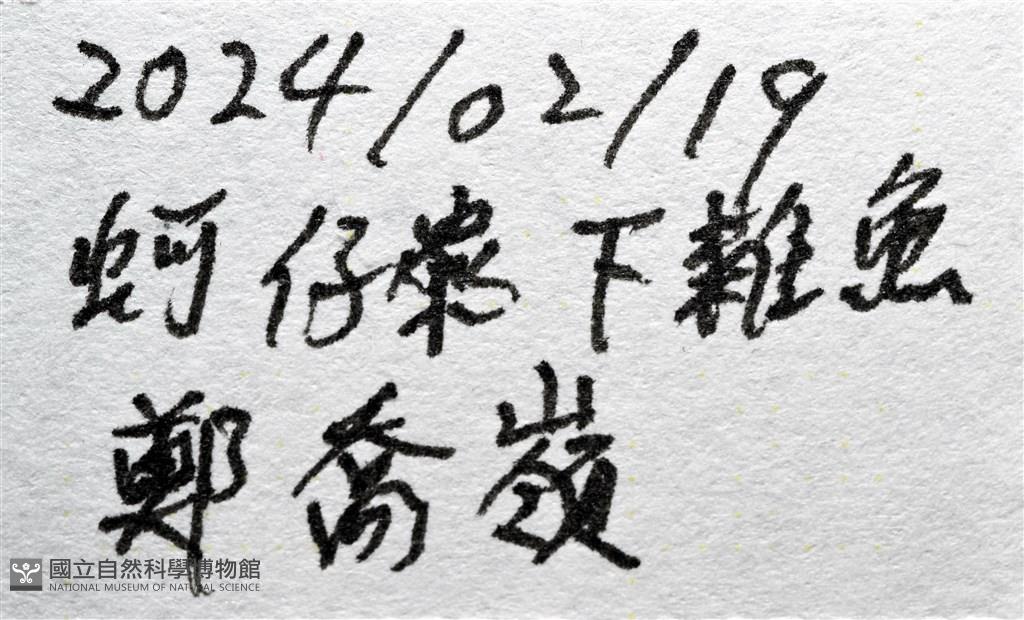 2024/02/19
蚵仔寮下雜魚
鄭喬嶺
國立自然科學博物館
NATIONAL MUSEUM OF NATURAL SCIENCE